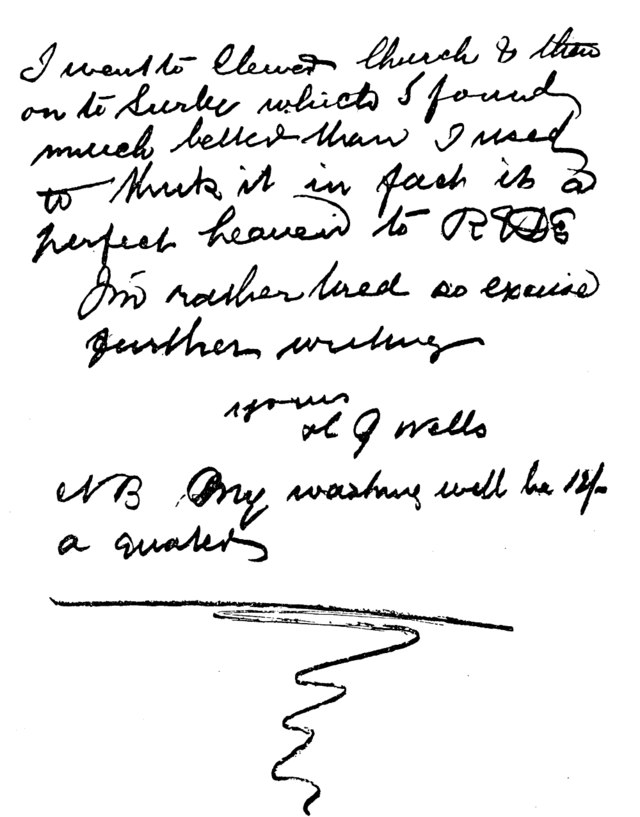 I went to Clewer Church & then
on to Surley which I found
much better than I used
to think it in fact its a
perfect heaven to R&DE
Im rather tired so excuse
further writing
yours
H G Wells
NB My washing will be 12/-
a quarter